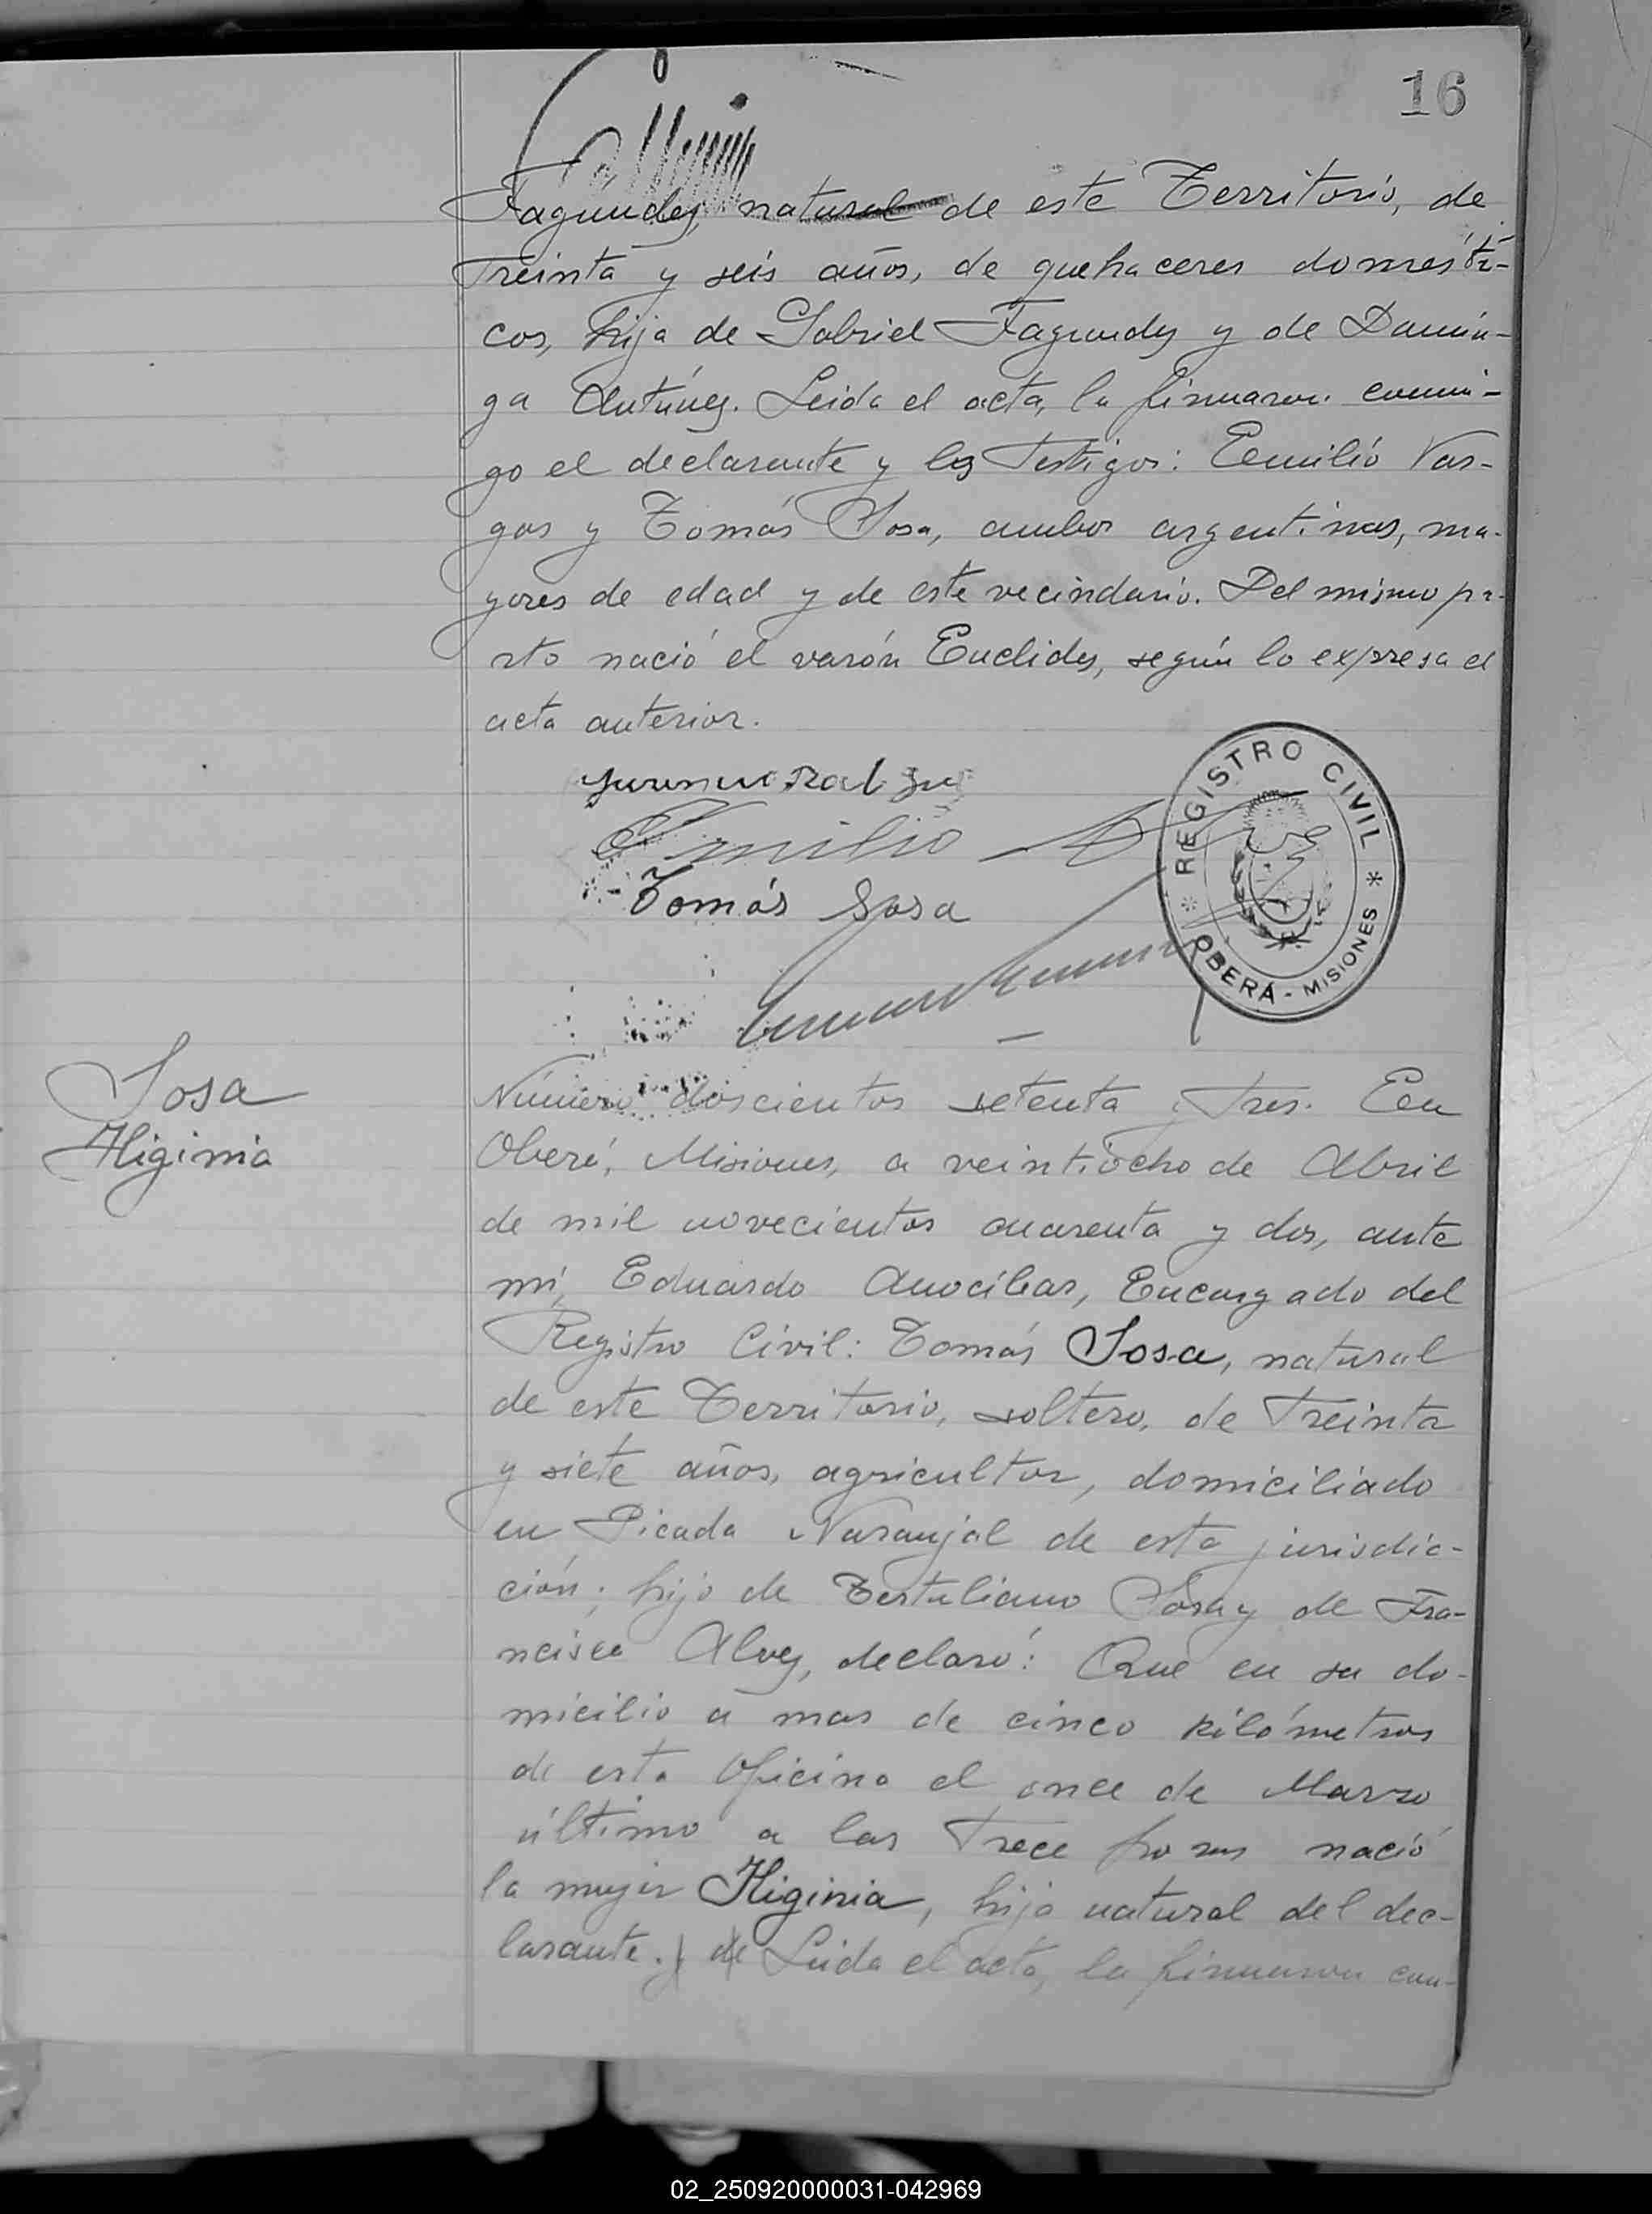 16
Fagúndes, natural de este Territorio, de
treinta y seis años, de quehaceres domésti-
cos, hija de Gabriel Fagundes y de Domin-
ga Antúnes. Leida el acta, la firmaron conmi-
go el declarante y los testigos: Emilio Var-
gas y Tomás Sosa, ambos argentinos, ma-
yores de edad y de este vecindario. Del mismo pa-
rto nació el varón Euclides, según lo expresa el
acta anterior.
Emilio
Tomás Sosa
REGISTRO CIVIL
OBERÁ - MISIONES
Sosa
Higinia
Número doscientos setenta y tres. En
Oberá, Misiones, a veintiocho de Abril
de mil novecientos cuarenta y dos, ante
mí, Eduardo Anocibar, Encargado del
Registro Civil: Tomás Sosa, natural
de este Territorio, soltero, de treinta
y siete años, agricultor, domiciliado
en Picada Naranjal de esta jurisdic-
ción; hijo de Tertuliano Sosa y de Fra-
ncisca Alves, declaró: Que en su do-
micilio a mas de cinco kilómetros
de esta Oficina el once de Marzo
último a las trece horas nació
la mujer Higinia, hija natural del dec-
larante. y de Leida el acta, la firmaron con-
02_250920000031-042969